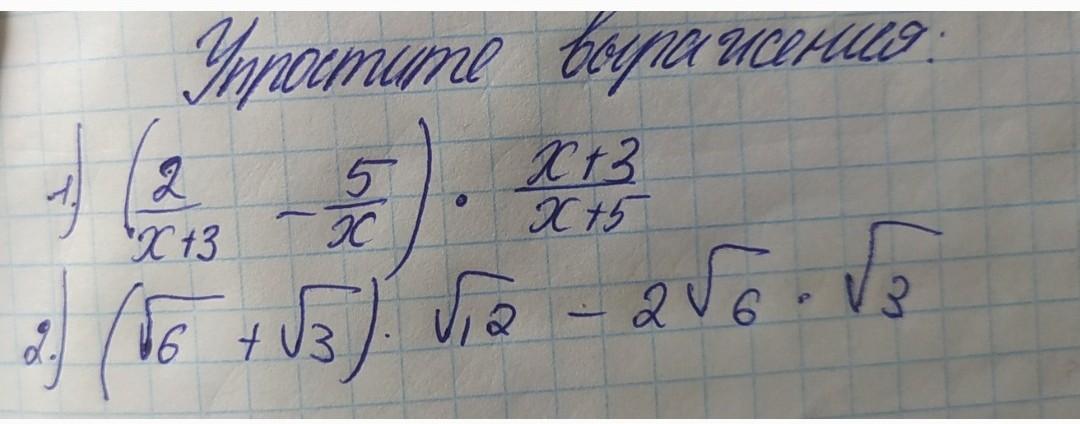 Упростите выражения:
1.) (2/(x+3) - 5/x) · (x+3)/(x+5)
2.) (√6 + √3) · √12 - 2√6 · √3